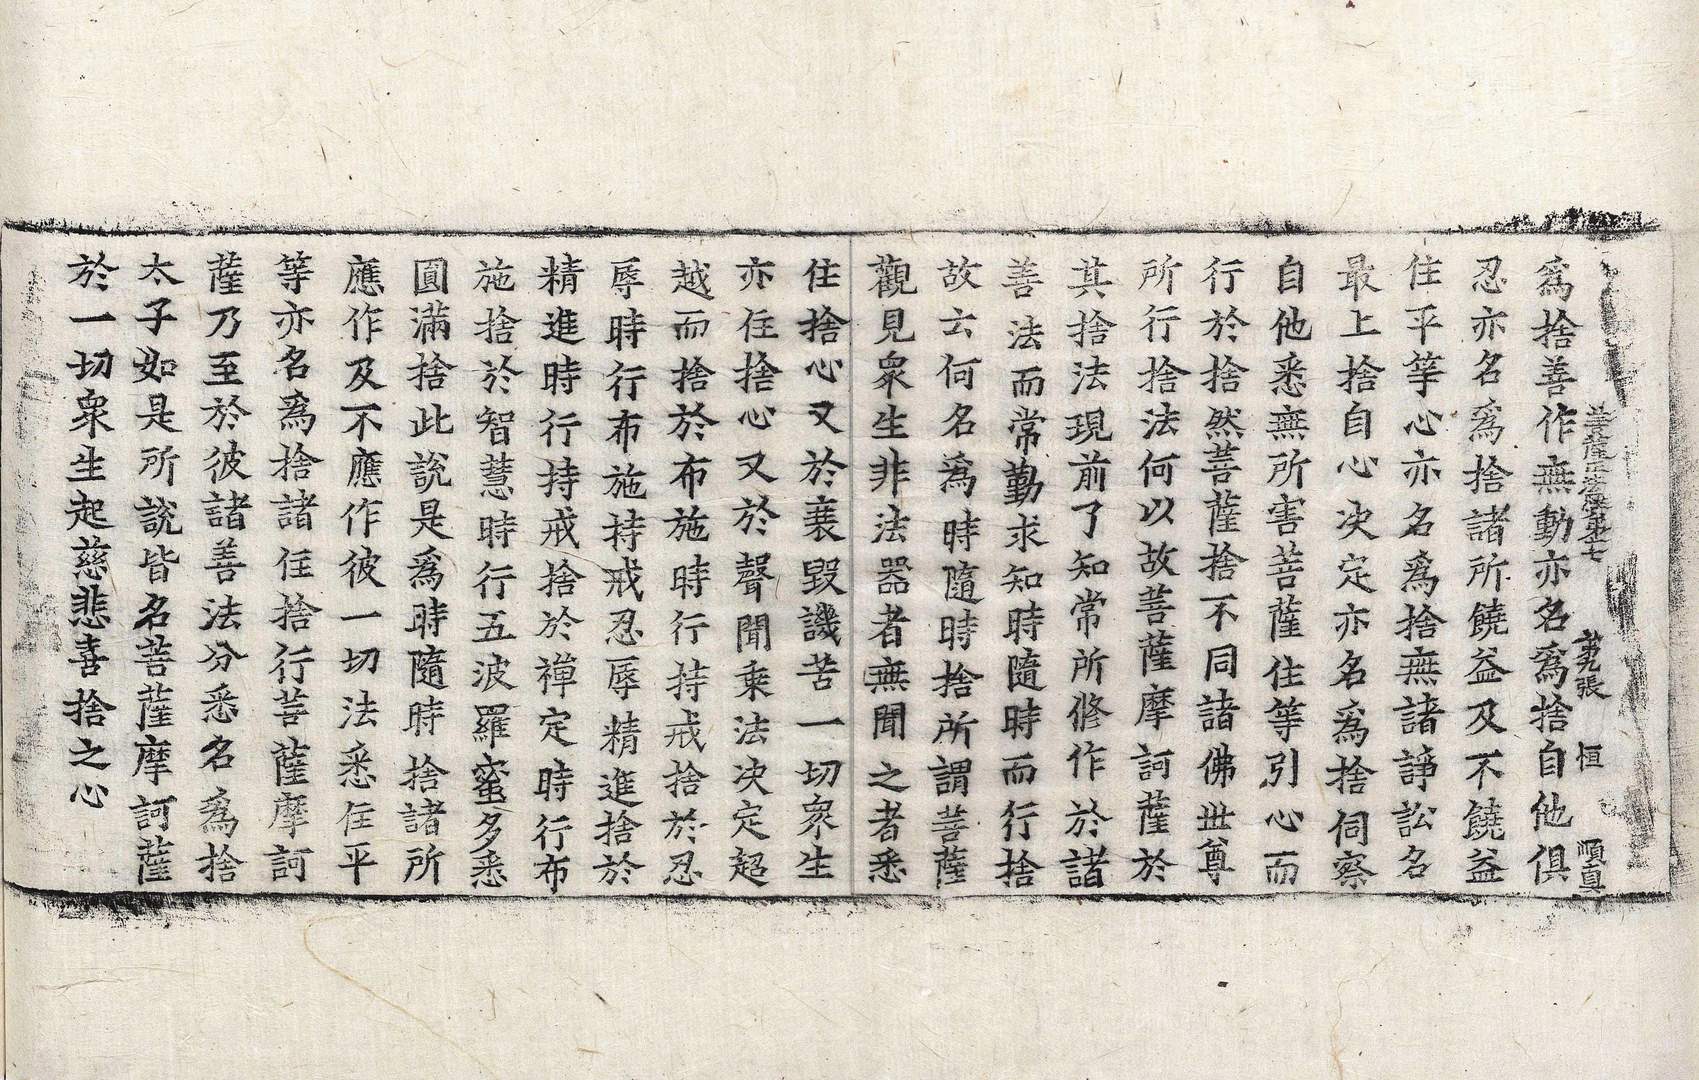 菩薩正法經第七 第九張 桓
爲捨善作無動亦名爲捨自他俱
忍亦名爲捨諸所饒益及不饒益
住平等心亦名爲捨無諸諍訟名
最上捨自心决定亦名爲捨伺察
自他悉無所害菩薩住等引心而
行於捨然菩薩捨不同諸佛世尊
所行捨法何以故菩薩摩訶薩於
其捨法現前了知常所修作於諸
善法而常勤求知時隨時而行捨
故云何名爲時隨時捨所謂菩薩
觀見衆生非法器者無聞之者悉
住捨心又於衰毀譏苦一切衆生
亦住捨心又於聲聞乘法决定超
越而捨於布施時行持戒捨於忍
辱時行布施持戒忍辱精進捨於
精進時行持戒捨於禪定時行布
施捨於智慧時行五波羅蜜多悉
圓滿捨此說是爲時隨時捨諸所
應作及不應作彼一切法悉住平
等亦名爲捨諸住捨行菩薩摩訶
薩乃至於彼諸善法分悉名爲捨
太子如是所說皆名菩薩摩訶薩
於一切衆生起慈悲喜捨之心